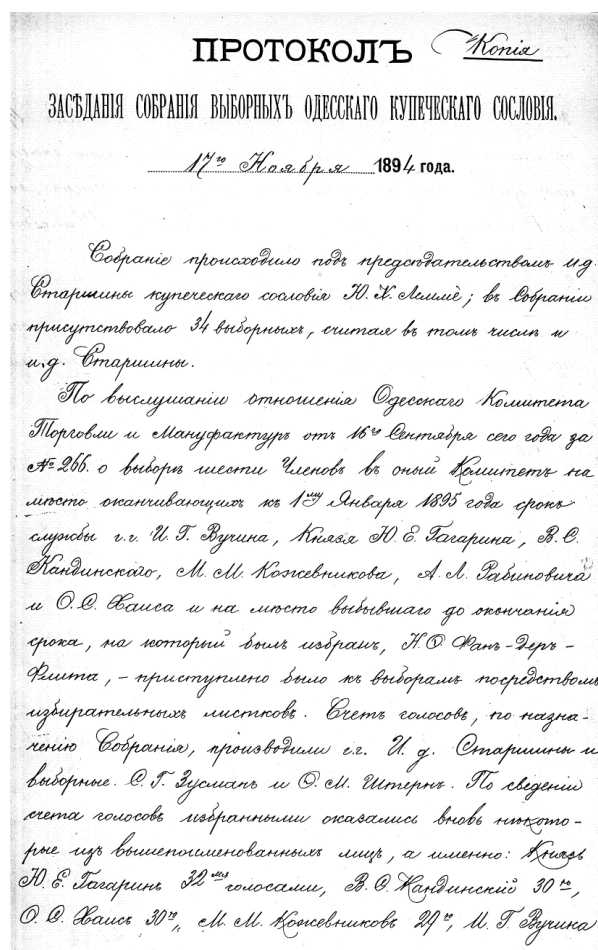 ПРОТОКОЛЪ Копія
ЗАСѢДАНІЯ СОБРАНІЯ ВЫБОРНЫХЪ ОДЕССКАГО КУПЕЧЕСКАГО СОСЛОВІЯ.
17го Ноября 1894 года.
Собраніе происходило подъ предсѣдательствомъ и.д.
Старшины купеческаго сословія Ю. Х. Леммѐ; въ Собраніи
присутствовало 34 выборныхъ, считая въ томъ числѣ и
и.д. Старшины.
По выслушаніи отношенія Одесскаго Комитета
Торговли и Мануфактуръ отъ 16го Сентября сего года за
№ 266. о выборѣ шести Членовъ въ оный Комитетъ на
мѣсто оканчивающихъ къ 1му Января 1895 года срокъ
службы г.г. И. Г. Вучина, Князя Ю. Е. Гагарина, В. С.
Кандинскаго, М. М. Кожевникова, А. Л. Рабиновича
и О. С. Хаиса и на мѣсто выбывшаго до окончанія
срока, на который былъ избранъ, Н. Ф. Фанъ-деръ-
Флита, - приступлено было къ выборамъ посредствомъ
избирательныхъ листковъ. Счетъ голосовъ, по назна-
ченію Собранія, производили г.г. И. д. Старшины и
выборные. С. Г. Зусманъ и О. М. Штернъ. По сведеніи
счета голосовъ избранными оказались вновь нѣкото-
рые изъ вышепоименованныхъ лицъ, а именно: Князь
Ю. Е. Гагаринъ 32мя голосами, В. С. Кандинскій 30ю,
О. С. Хаисъ 30ю, М. М. Кожевниковъ 29ю, И. Г. Вучина